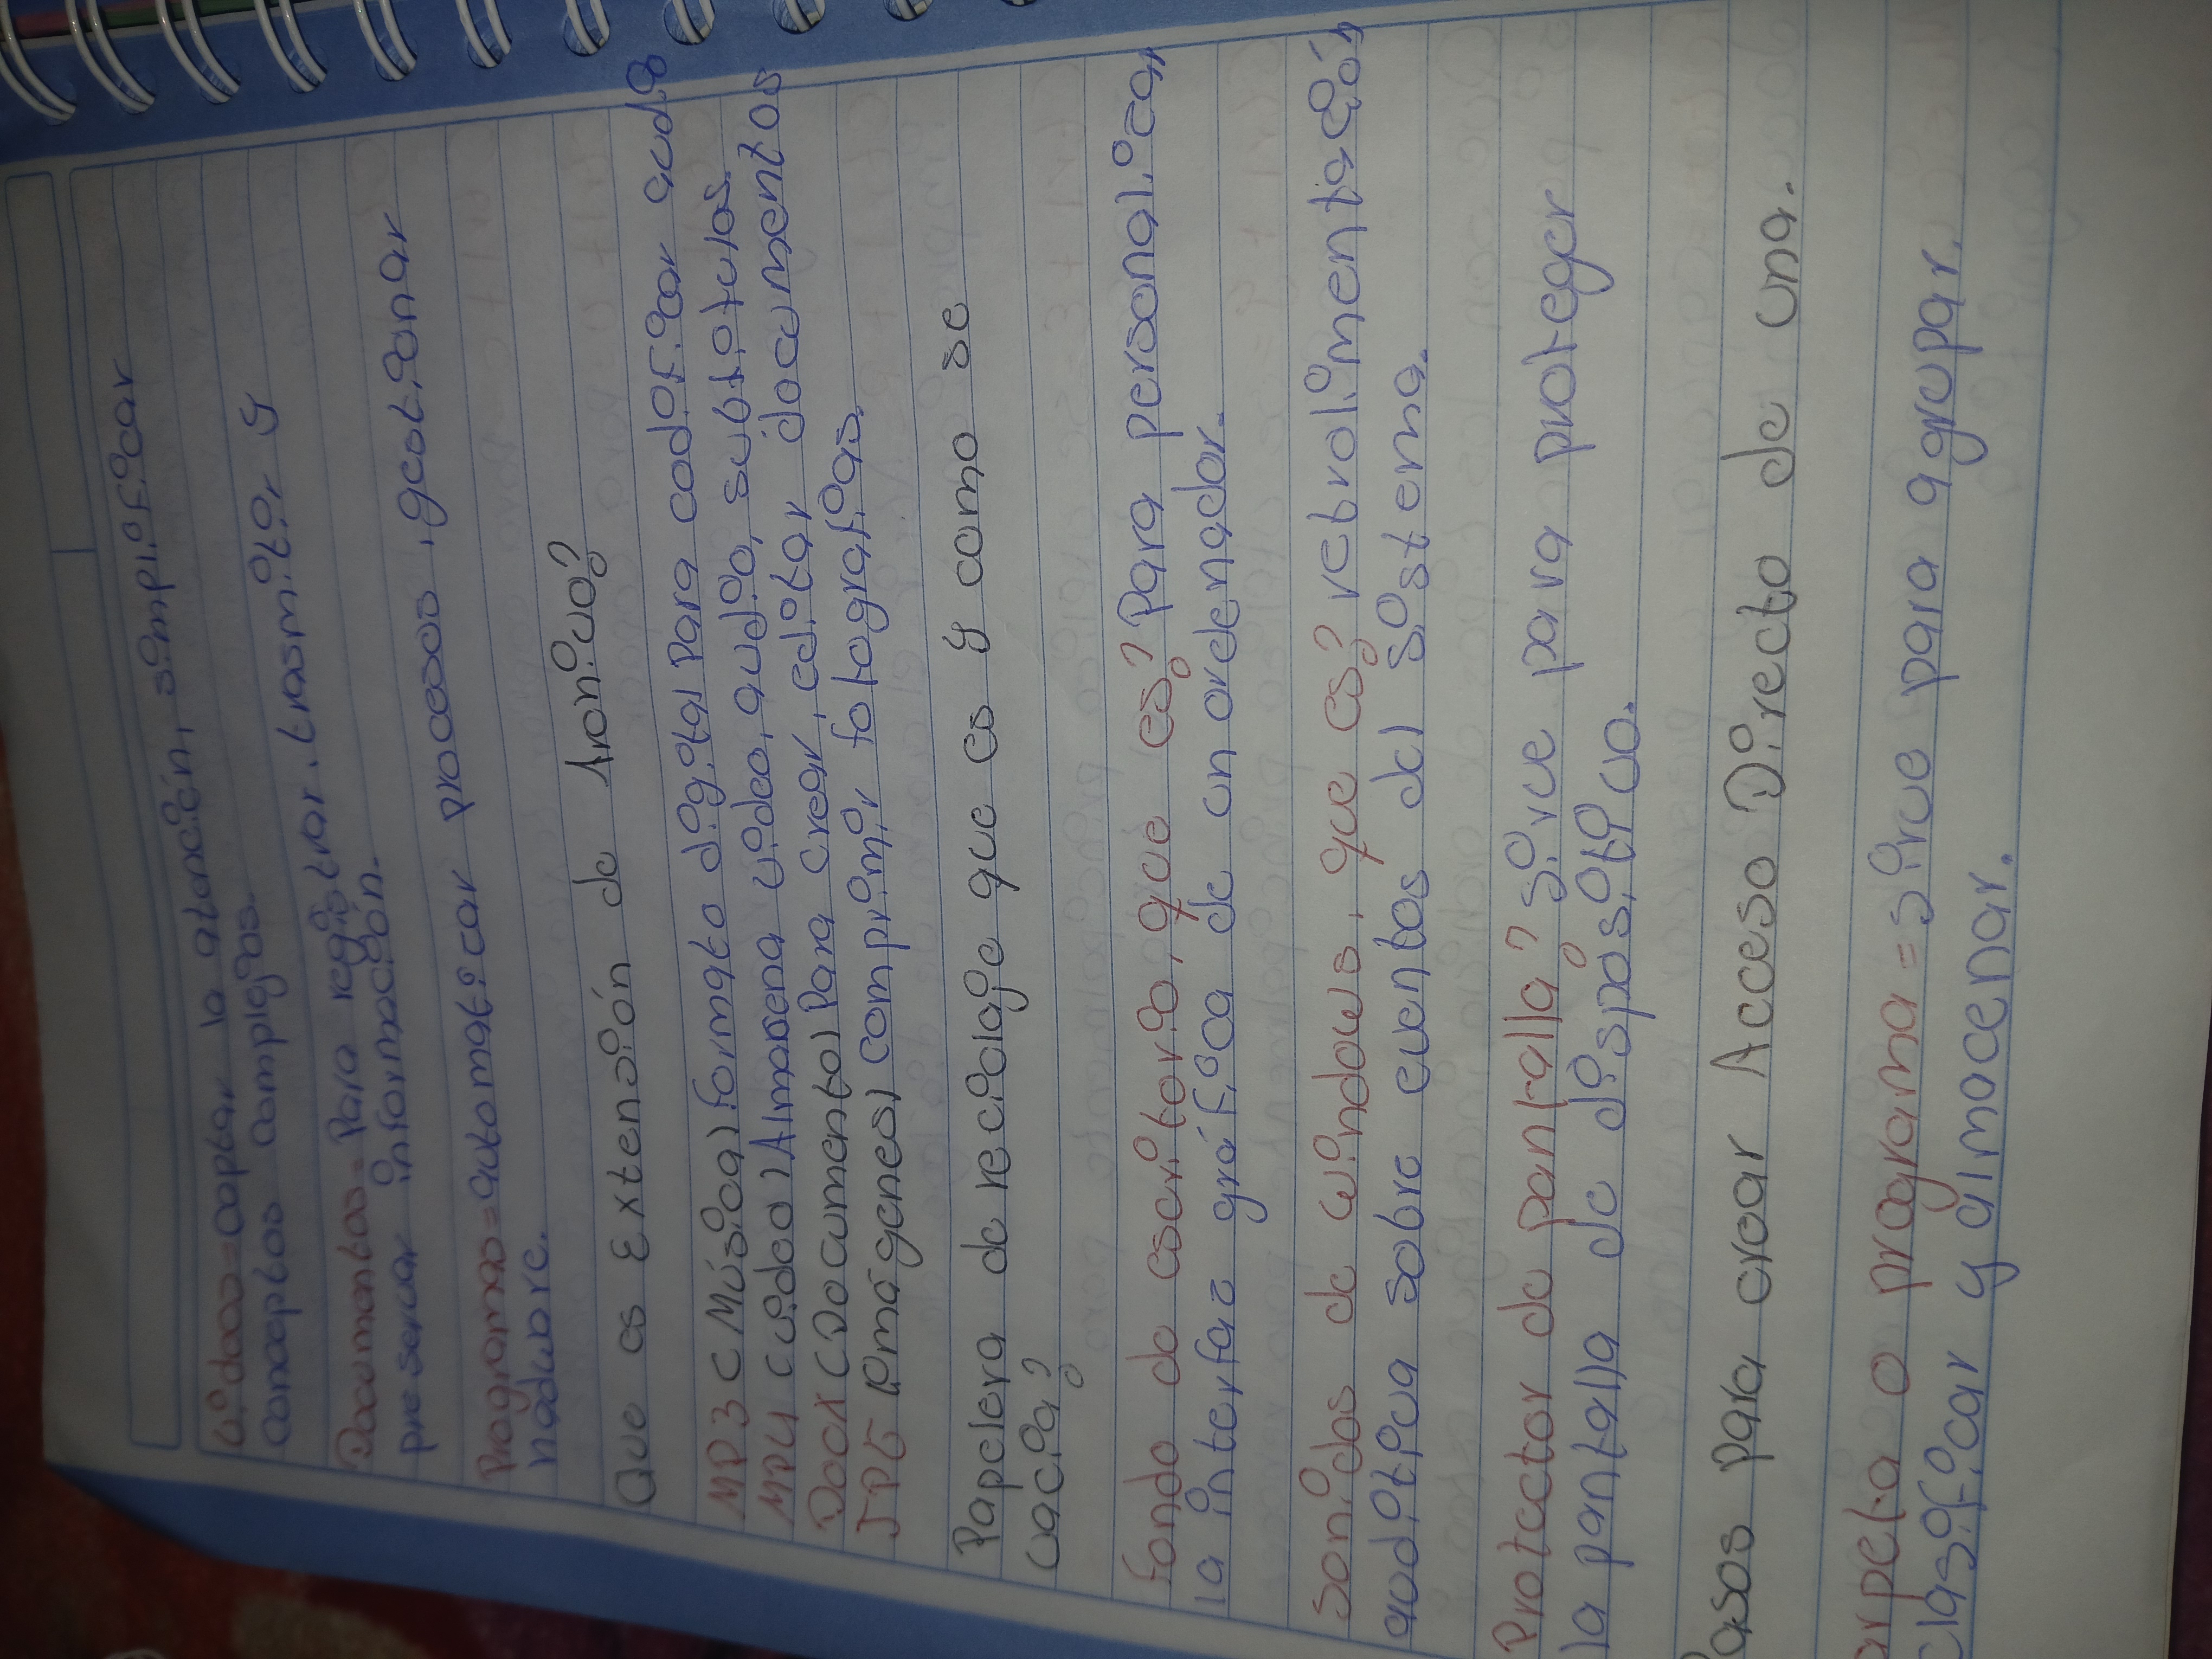 Videos = captar la atención, simplificar
conceptos complejos.
Documentos = Para registrar, trasmitir y
preservar información.
Programas = automatizar procesos, gestionar
hadware.
Que es Extensión de Archivo?
MP3 (Música) Formato digital Para codificar audio
MP4 (video) Almacena video, audio, subtitulos.
Docx (Documentos) Para crear, editar documentos
JPG (Imágenes) comprimir fotografías.
Papelera de reciclaje que es y como se
vacía?
Fondo de escritorio, que es? Para personalizar
la interfaz gráfica de un ordenador.
Sonidos de windows, que es? retroalimentación
auditiva sobre eventos del sistema.
Protector de pantalla? sirve para proteger
la pantalla de dispositivo.
Pasos para crear Acceso Directo de una.
arpeta o programa = sirve para agrupar.
clasificar y almacenar.